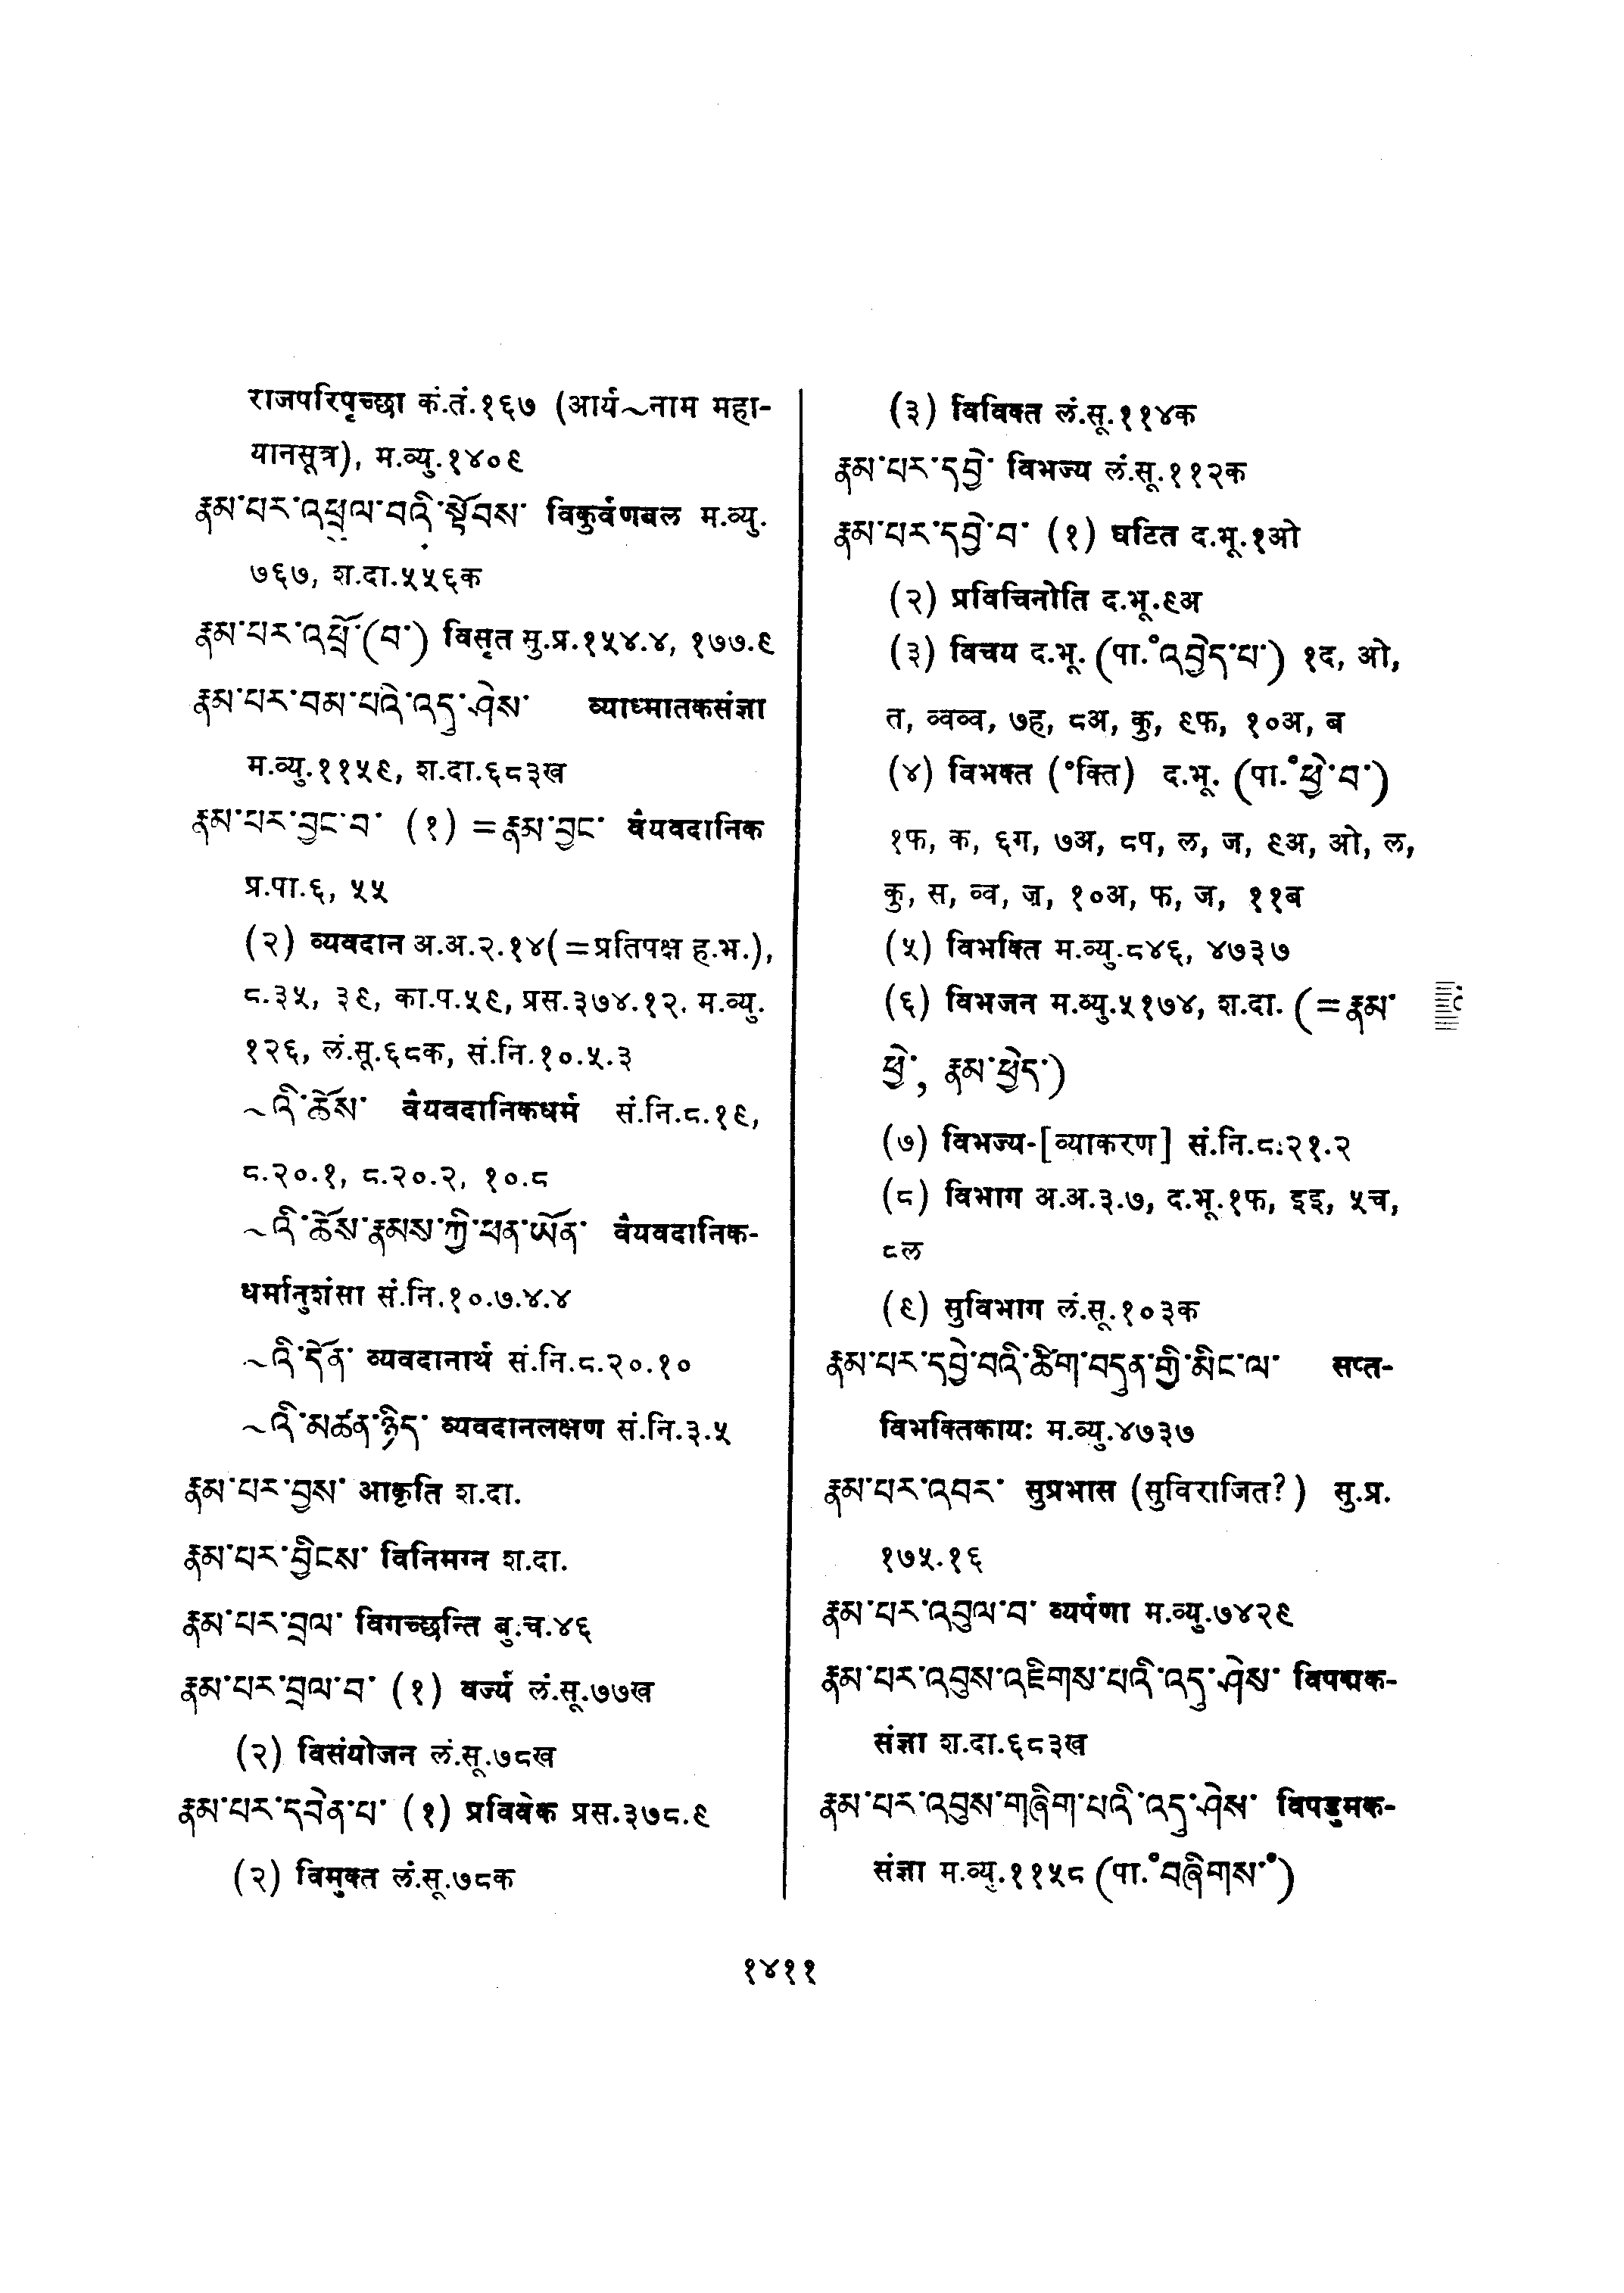 राजपरिपृच्छा कं.तं.१६७ (आर्य~नाम महा-
यानसूत्र), म.व्यु.१४०९
རྣམ་པར་འཕྲུལ་བའི་སྟོབས་ विकुर्वणबल म.व्यु.
७६७, श.दा.५५६क
རྣམ་པར་འཕྲོ་(བ་) विसृत सु.प्र.१५४.४, १७७.९
རྣམ་པར་བམ་པའི་འདུ་ཤེས་ व्याध्मातकसंज्ञा
म.व्यु.११५९, श.दा.६८३ख
རྣམ་པར་བྱང་བ་ (१) =རྣམ་བྱང་ वैयवदानिक
प्र.पा.६, ५५
(२) व्यवदान अ.अ.२.१४(=प्रतिपक्ष ह.भ.),
८.३५, ३९, का.प.५९, प्रस.३७४.१२. म.व्यु.
१२६, लं.सू.६८क, सं.नि.१०.५.३
~འི་ཆོས་ वैयवदानिकधर्म सं.नि.८.१९,
८.२०.१, ८.२०.२, १०.८
~འི་ཆོས་རྣམས་ཀྱི་ཕན་ཡོན་ वैयवदानिक-
धर्मानुशंसा सं.नि.१०.७.४.४
~འི་དོན་ व्यवदानार्थ सं.नि.८.२०.१०
~འི་མཚན་ཉིད་ व्यवदानलक्षण सं.नि.३.५
རྣམ་པར་བྱས་ आकृति श.दा.
རྣམ་པར་བྱིངས་ विनिमग्न श.दा.
རྣམ་པར་བྲལ་ विगच्छन्ति बु.च.४६
རྣམ་པར་བྲལ་བ་ (१) वर्ज्य लं.सू.७७ख
(२) विसंयोजन लं.सू.७८ख
རྣམ་པར་དབེན་པ་ (१) प्रविवेक प्रस.३७८.९
(२) विमुक्त लं.सू.७८क
(३) विविक्त लं.सू.११४क
རྣམ་པར་དབྱེ་ विभज्य लं.सू.११२क
རྣམ་པར་དབྱེ་བ་ (१) घटित द.भू.१ओ
(२) प्रविचिनोति द.भू.९अ
(३) विचय द.भू. (पा.॰འབྱེད་པ་) १द, ओ,
त, व्वव्व, ७ह, ८अ, कु, ९फ, १०अ, ब
(४) विभक्त (॰क्ति) द.भू. (पा.॰ཕྱེ་བ་)
१फ, क, ६ग, ७अ, ८प, ल, ज, ९अ, ओ, ल,
कु, स, व्व, ज़, १०अ, फ, ज, ११ब
(५) विभक्ति म.व्यु.८४६, ४७३७
(६) विभजन म.व्यु.५१७४, श.दा. (=རྣམ་
ཕྱེ་, རྣམ་ཕྱེད་)
(७) विभज्य-[व्याकरण] सं.नि.८.२१.२
(८) विभाग अ.अ.३.७, द.भू.१फ, इइ, ५च,
८ल
(९) सुविभाग लं.सू.१०३क
རྣམ་པར་དབྱེ་བའི་ཚིག་བདུན་གྱི་མིང་ལ་ सप्त-
विभक्तिकायः म.व्यु.४७३७
རྣམ་པར་འབར་ सुप्रभास (सुविराजित?) सु.प्र.
१७५.१६
རྣམ་པར་འབུལ་བ་ व्यर्पणा म.व्यु.७४२९
རྣམ་པར་འབུས་འཇིགས་པའི་འདུ་ཤེས་ विपद्मक-
संज्ञा श.दा.६८३ख
རྣམ་པར་འབུས་གཞིག་པའི་འདུ་ཤེས་ विपडुमक-
संज्ञा म.व्यु.११५८ (पा.॰བཞིགས་॰)
१४११